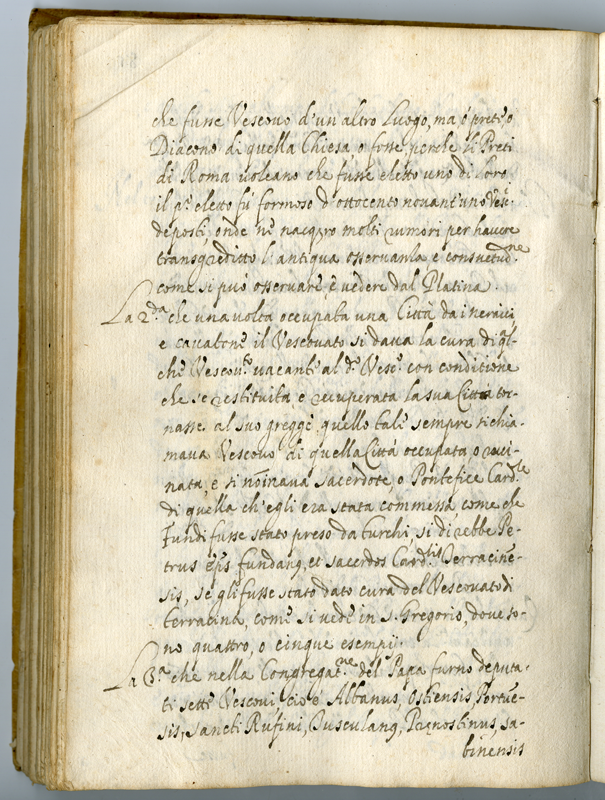 che fusse Vescouo d'un altro Luogo, ma ò prete ò
Diacono di quella Chiesa o forse perche li Preti
di Roma uoleano che fusse eletto uno di loro
il p.º eletto fú formoso d'ottocento nouant'uno Vesc.
deposti, onde ne nacq.ro molti rumori per hauere
transgreditto l'antiqua osseruanza e consuetud.ne
come si può osseruare, e uedere dal Platina.
La 2.da che una uolta occupata una Città da inemici
e cauatone il Vescouato si daua la cura di ql-
che Vescou.to uacante al d.º Vesc.º con conditione
che se restituita e recuperata la sua Città tor-
nasse al suo gregge, quello tale sempre si chia-
maua Vescouo di quella Città occupata, o roui-
nata, e si nõinaua sacerdote, o Pontefice Card.le
di quella ch'egli era stata commessa come che
Fundi fusse stato preso da turchi, si direbbe Pe-
trus ep̃s fundanq, et sacerdos Card.lis Terracine-
sis, se gli fusse stato dato cura del Vescouato di
terracina, come si vede in s. Gregorio, doue so-
no quattro, o cinque esempij.
La 3.a che nella Congregat.ne del Papa furno deputa-
ti sette Vescoui, cio è Albanus, Ostiensis, Portue-
sis, sancti Rufini, Tusculanq, Prenestinus, sa-
binensis